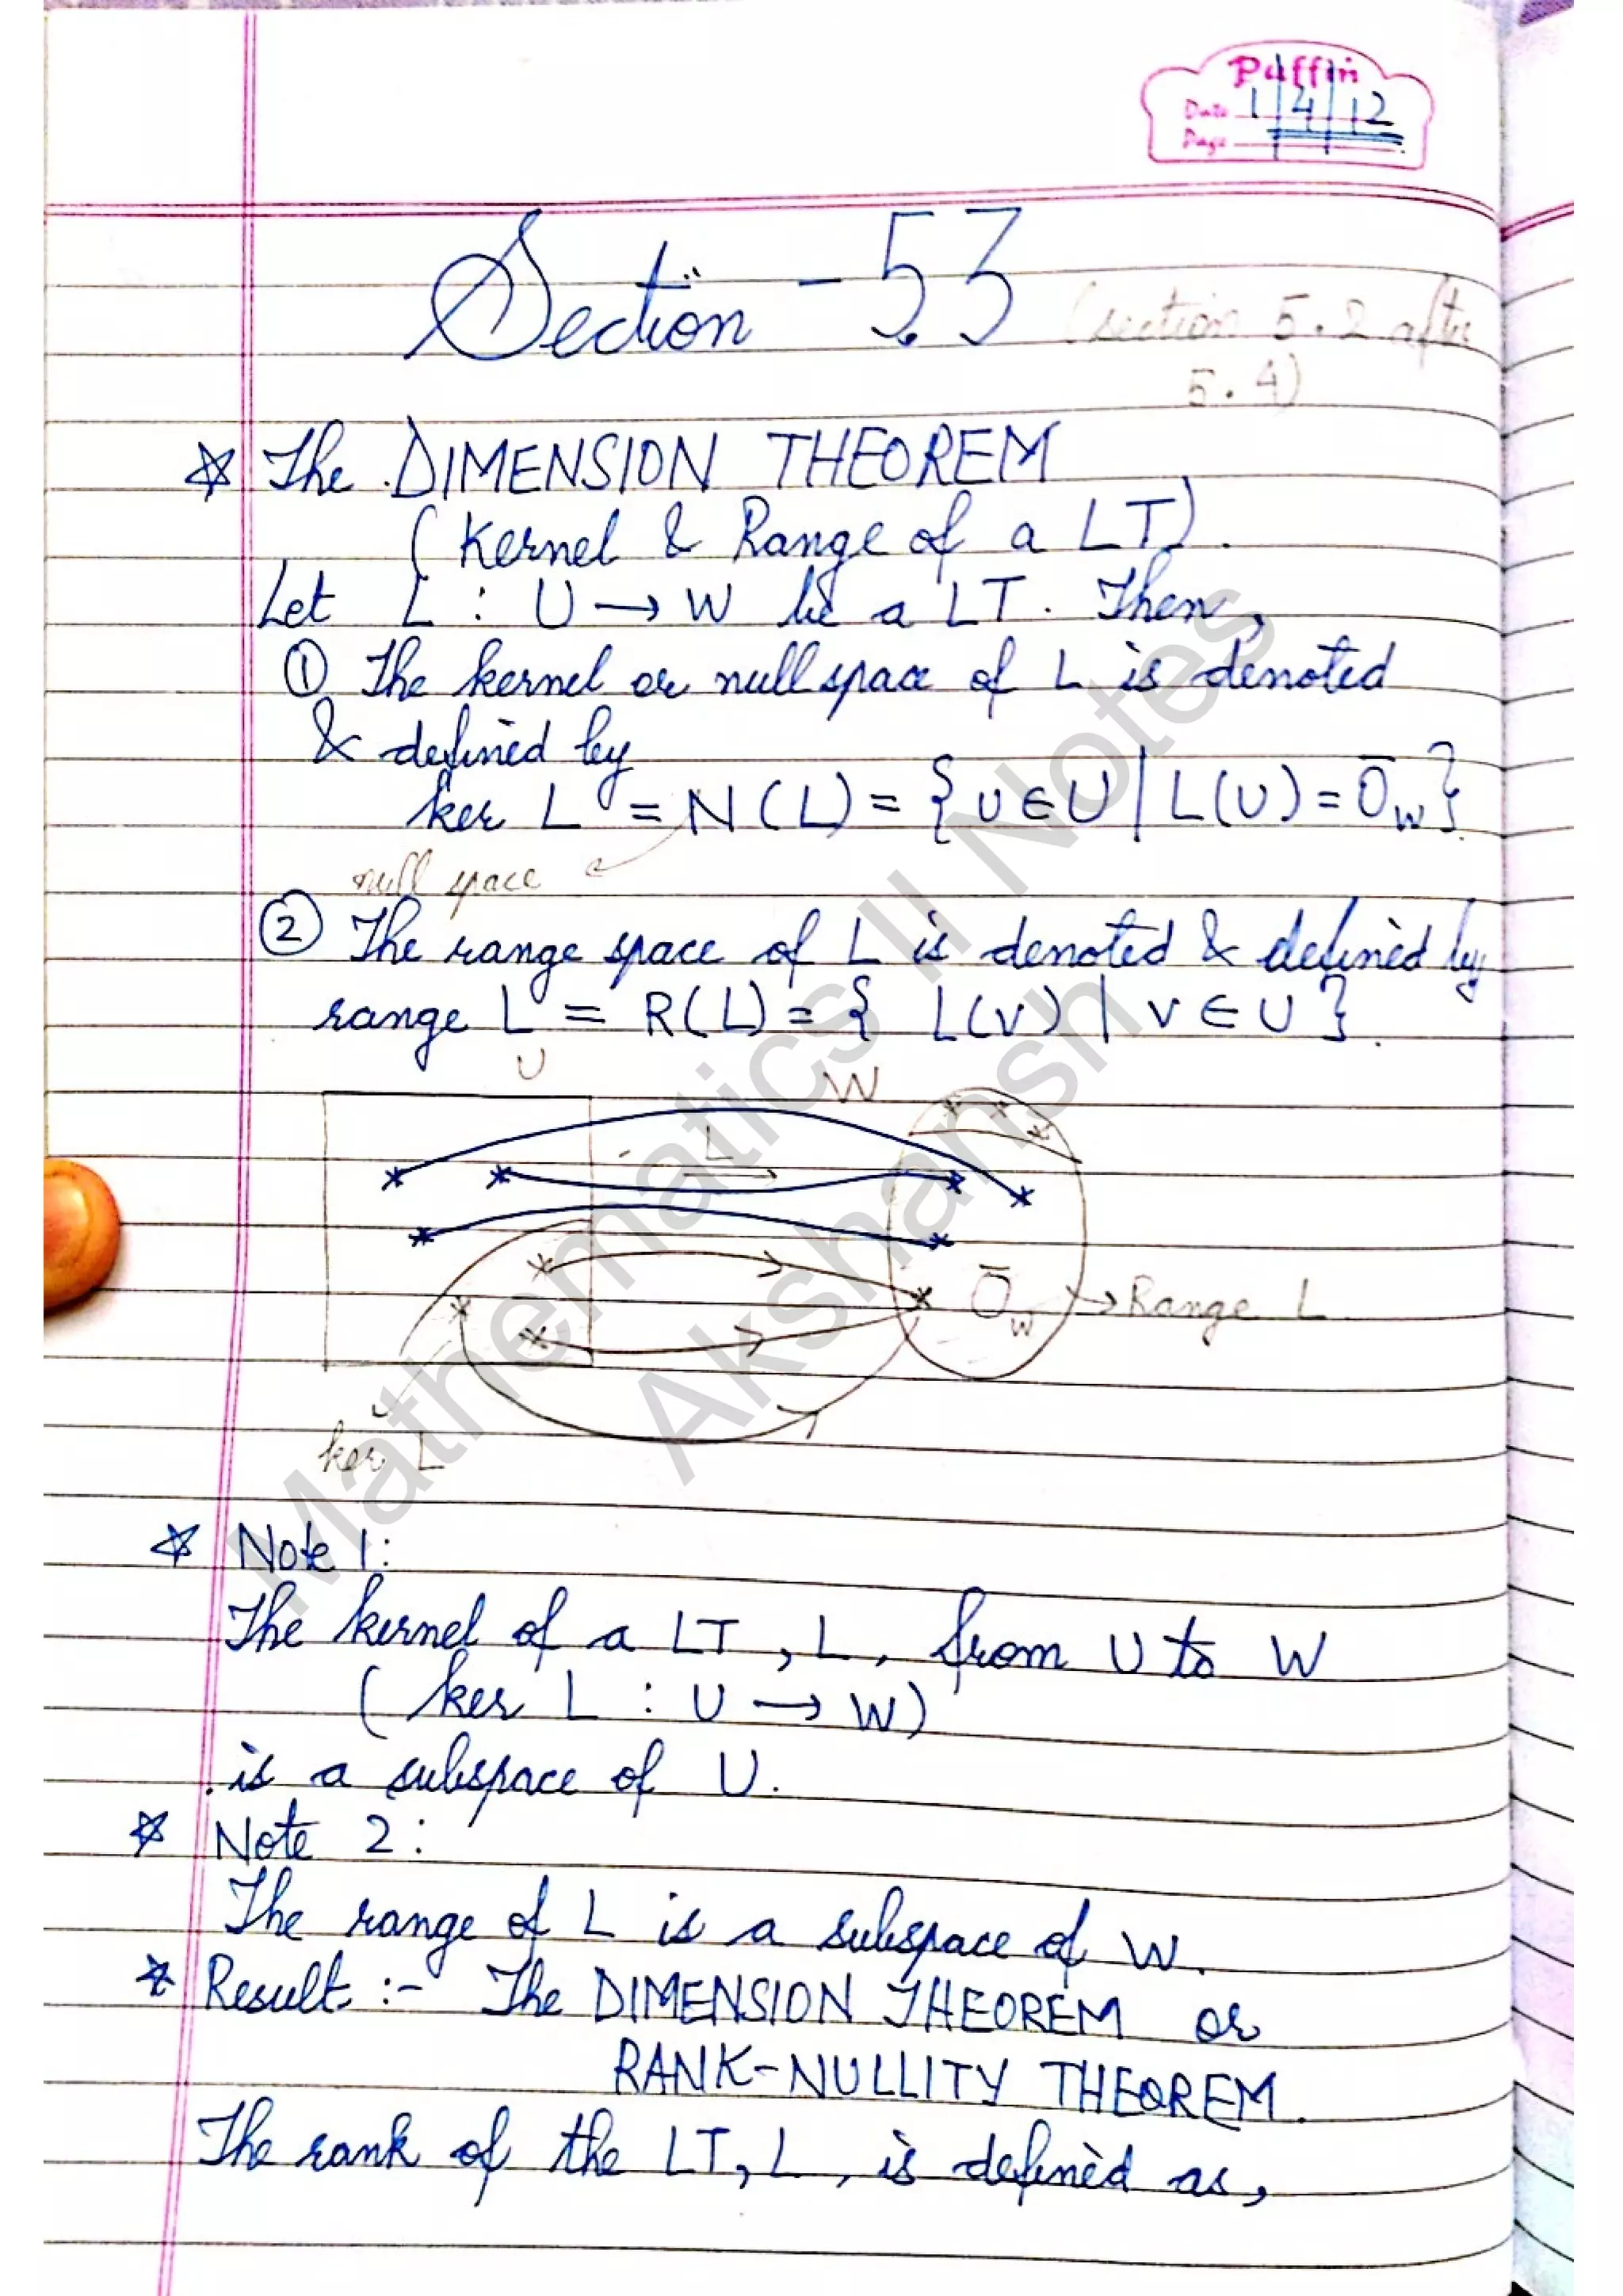 Puffin
Date 1/4/12
Page
Section - 5.3
(section 5.2 after
5.4)
☆ The DIMENSION THEOREM
(Kernel & Range of a LT).
Let L : U → W be a LT. Then,
① The kernel or null space of L is denoted
& defined by
ker L = N(L) = {u ∈ U | L(u) = O̅_W}
null space
② The range space of L is denoted & defined by
range L = R(L) = { L(v) | v ∈ U }.
U
W
L
O̅_W → Range L
ker L
☆ Note 1:
The kernel of a LT, L, from U to W
(ker L : U → W)
is a subspace of U.
☆ Note 2:
The range of L is a subspace of W.
☆ Result :- The DIMENSION THEOREM or
RANK-NULLITY THEOREM.
The rank of the LT, L, is defined as,
Mathematics II Notes
Akshansh